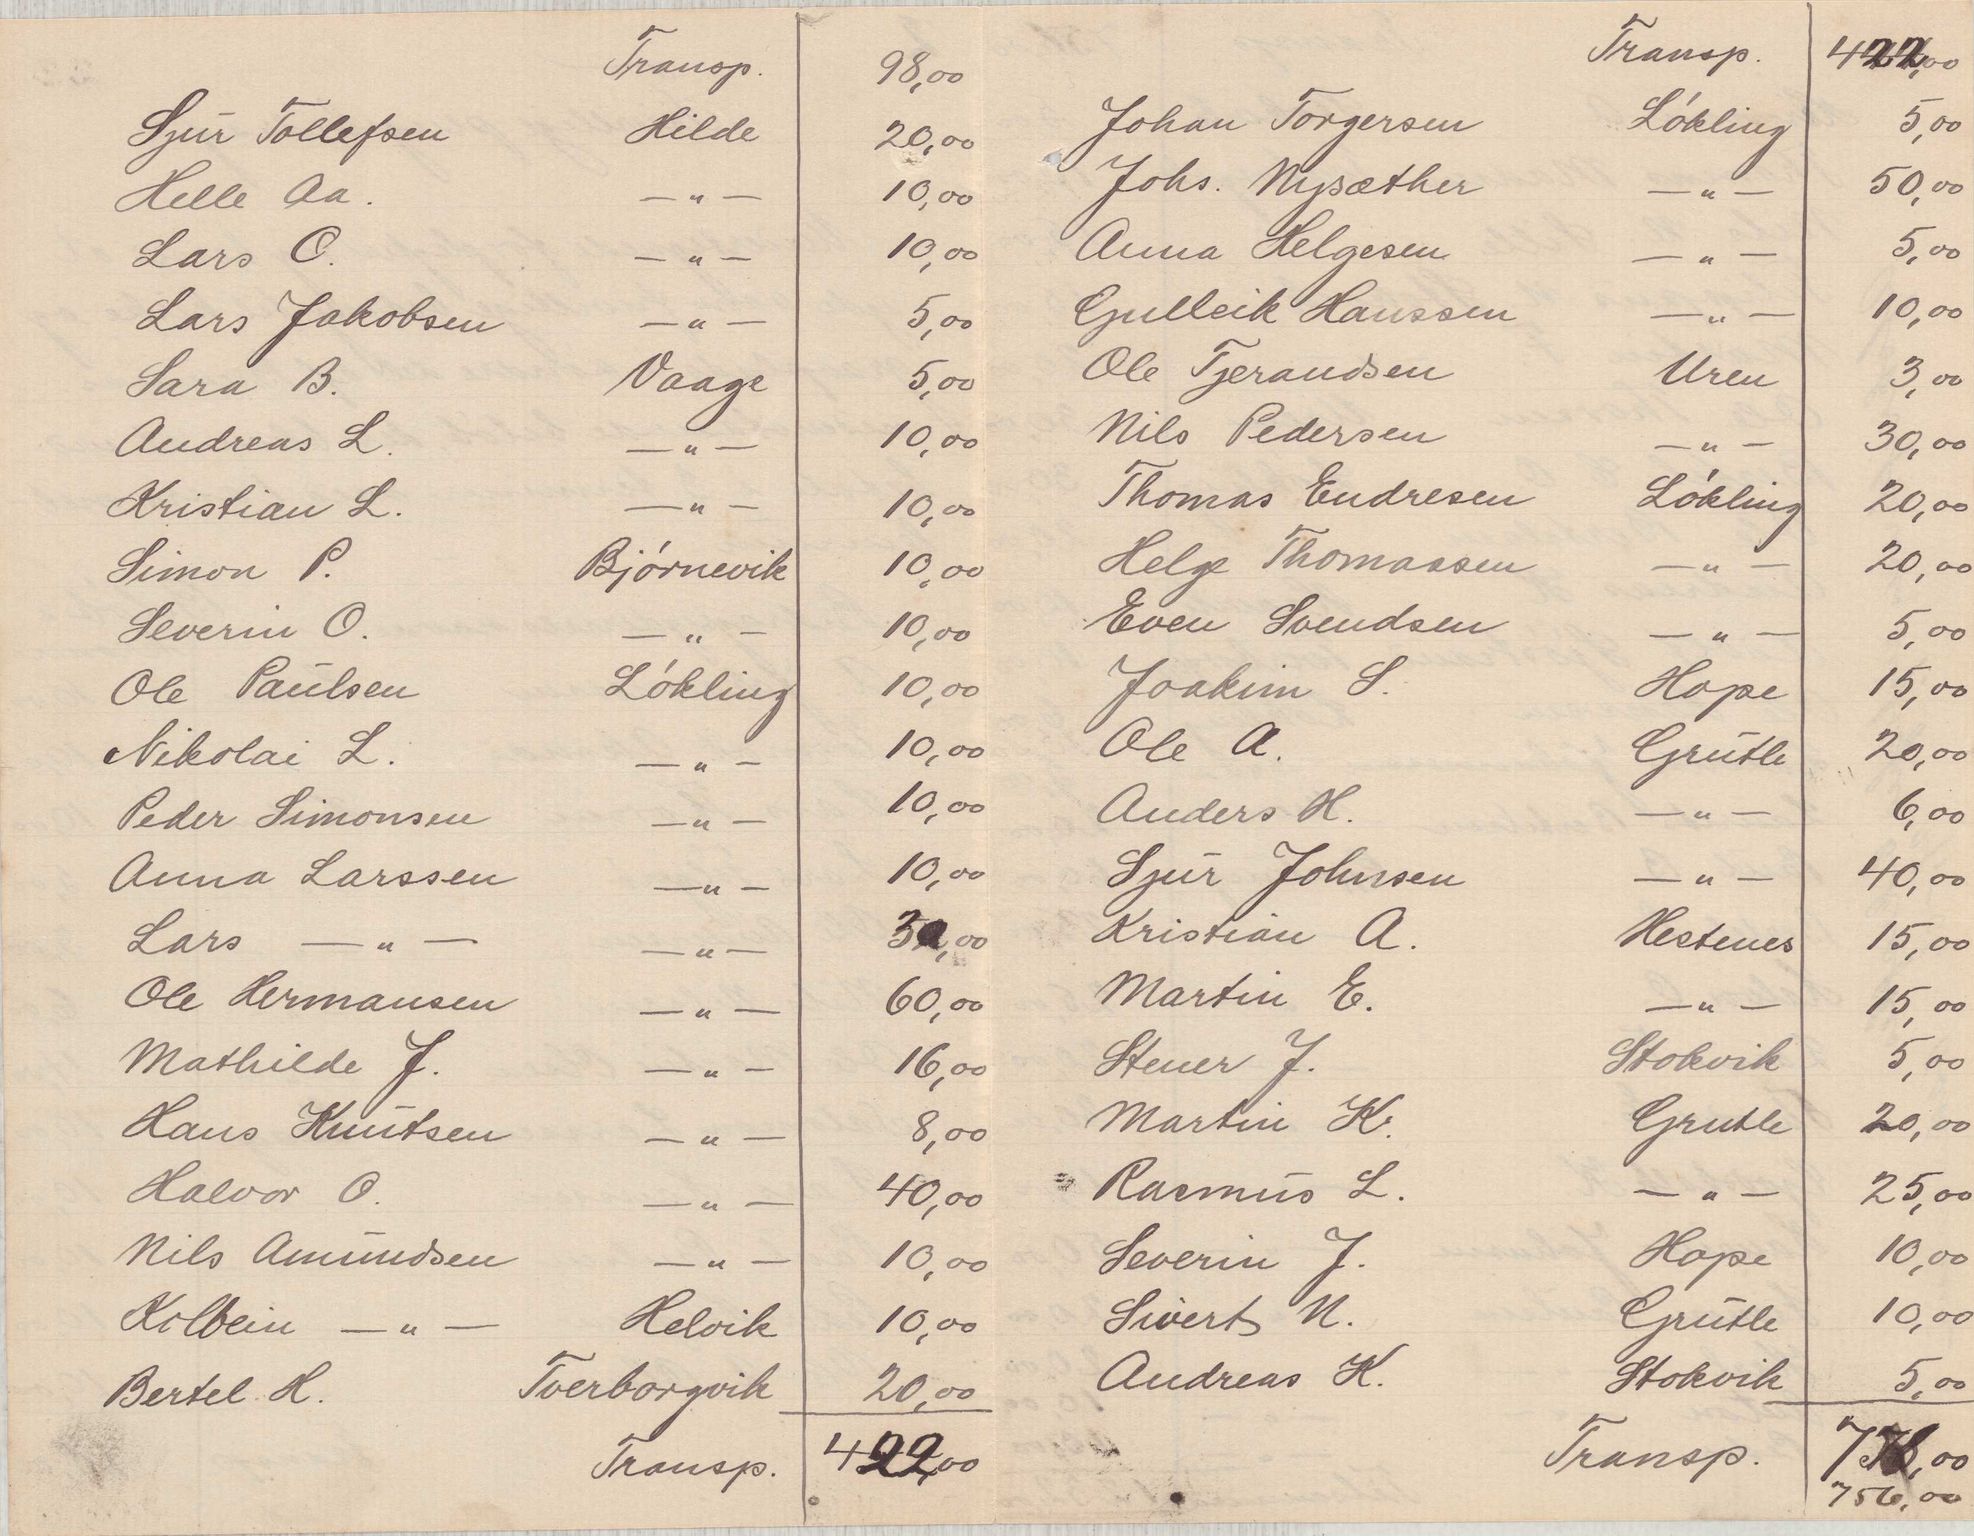 Transp. 98,00
Sjur Tollefsen Hilde 20,00
Helle Aa. —"— 10,00
Lars O. —"— 10,00
Lars Jakobsen —"— 5,00
Sara B. Vaage 5,00
Andreas L. —"— 10,00
Kristian L. —"— 10,00
Simon P. Bjórnevik 10,00
Severin O. —"— 10,00
Ole Paulsen Lókling 10,00
Nikolai L. —"— 10,00
Peder Simonsen —"— 10,00
Anna Larssen —"— 10,00
Lars —"— —"— 30,00
Ole Hermansen —"— 60,00
Mathilde J. —"— 16,00
Hans Knutsen —"— 8,00
Halvor O. —"— 40,00
Nils Amundsen —"— 10,00
Kolbein —"— Helvik 10,00
Bertel H. Tverborgvik 20,00
Transp. 422,00
Transp. 422,00
Johan Torgersen Lókling 5,00
Johs. Nysæther —"— 50,00
Anna Helgesen —"— 5,00
Gulleik Hanssen —"— 10,00
Ole Tjerandsen Uren 3,00
Nils Pedersen —"— 30,00
Thomas Endresen Lókling 20,00
Helge Thomassen —"— 20,00
Even Svendsen —"— 5,00
Joakim S. Hope 15,00
Ole A. Grutle 20,00
Anders H. —"— 6,00
Sjur Johnsen —"— 40,00
Kristian A. Hestenes 15,00
Martin E. —"— 15,00
Stener J. Stokvik 5,00
Martin K. Grutle 20,00
Rasmus L. —"— 25,00
Severin J. Hope 10,00
Sivert N. Grutle 10,00
Andreas K. Stokvik 5,00
Transp.
756,00